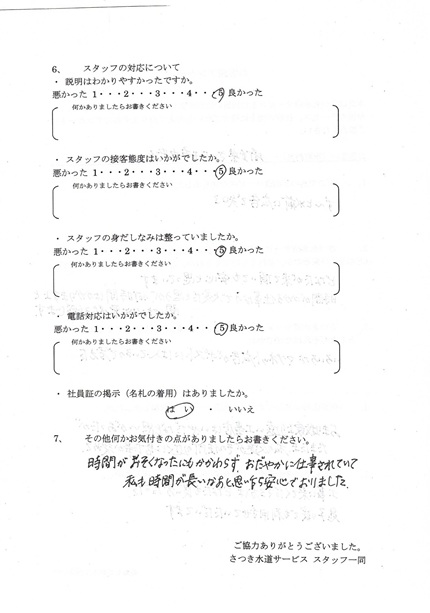 6、 スタッフの対応について
・ 説明はわかりやすかったですか。
悪かった 1・・・2・・・3・・・4・・・5 良かった
何かありましたらお書きください
・ スタッフの接客態度はいかがでしたか。
悪かった 1・・・2・・・3・・・4・・・5 良かった
何かありましたらお書きください
・ スタッフの身だしなみは整っていましたか。
悪かった 1・・・2・・・3・・・4・・・5 良かった
何かありましたらお書きください
・ 電話対応はいかがでしたか。
悪かった 1・・・2・・・3・・・4・・・5 良かった
何かありましたらお書きください
・ 社員証の掲示（名札の着用）はありましたか。
はい ・ いいえ
7、 その他何かお気付きの点がありましたらお書きください。
時間がおそくなったにもかかわらず おだやかに仕事されていて
私も時間が長いなあと思いながら安心でおりました。
ご協力ありがとうございました。
さつき水道サービス スタッフ一同